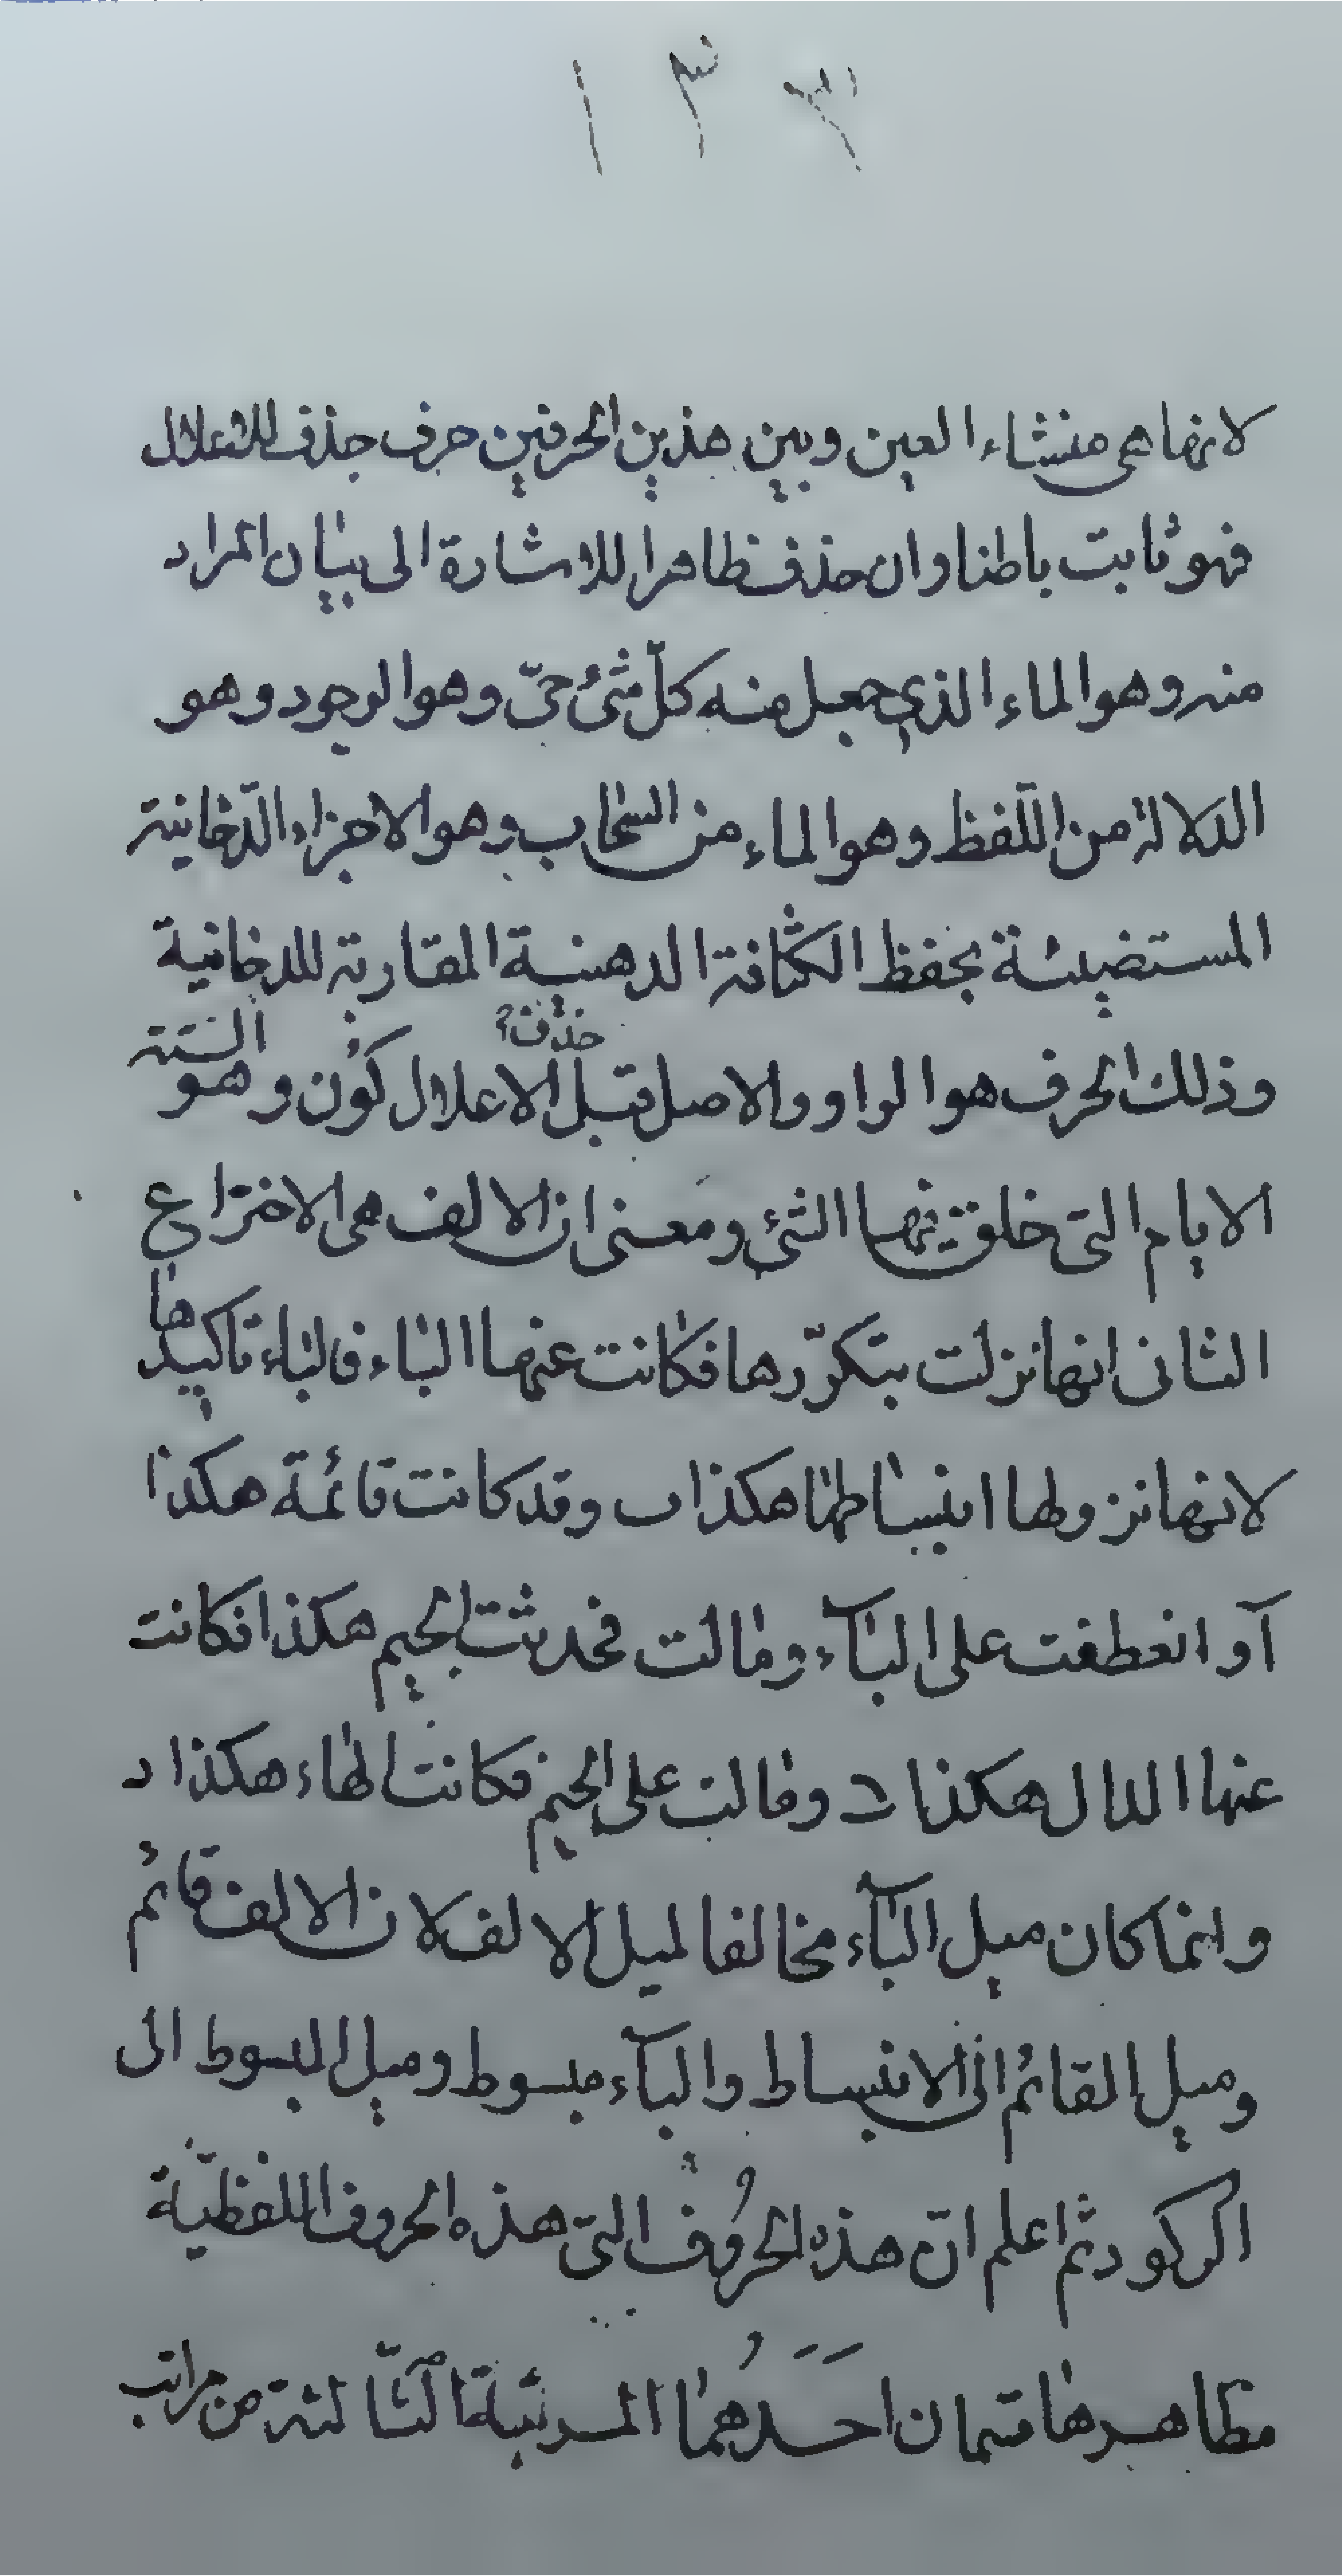 ١٣٣
لانها هى منشاء العين وبين هذين الحرفين حرف حذف للاعلال
فهو ثابت باطنا وان حذف ظاهرا للاشارة الى بيان المراد
منه وهو الماء الذى جعل منه كلّ شئ حىّ وهو الوجود وهو
الدلالة من اللّفظ وهو الماء من السّحاب وهو الاجزاء الدّخانية
المستضيئة بحفظ الكثافة الدهنية المقاربة للدخانية
حذف؟
وذلك الحرف هو الواو والاصل قبل الاعلال كُوُن وهو الستّة
الايام التى خلق فيها الشئ ومعنى ان الالف هى الاختراع
الثانى انها نزلت بتكرّرها فكانت عنها الباء فالباء تاكيدها
لانها نزولها انبساطها هكذا ب وقد كانت قائمة هكذا ا
آو انعطفت على البآء ومالت فحدثت الجيم هكذا فكانت
عنها الدال هكذا د ومالت على الجيم فكانت الهاء هكذا د
وانما كان ميل البآء مخالفا لميل الالف لان الالف قائم
وميل القائم الى الانبساط والبآء مبسوط وميل المبسوط الى
الركود ثم اعلم انّ هذه الحرُوف التى هذه الحروف اللفظيّة
مظاهرها قسمان احَدُهما المرتبة الثّالثة من مراتب